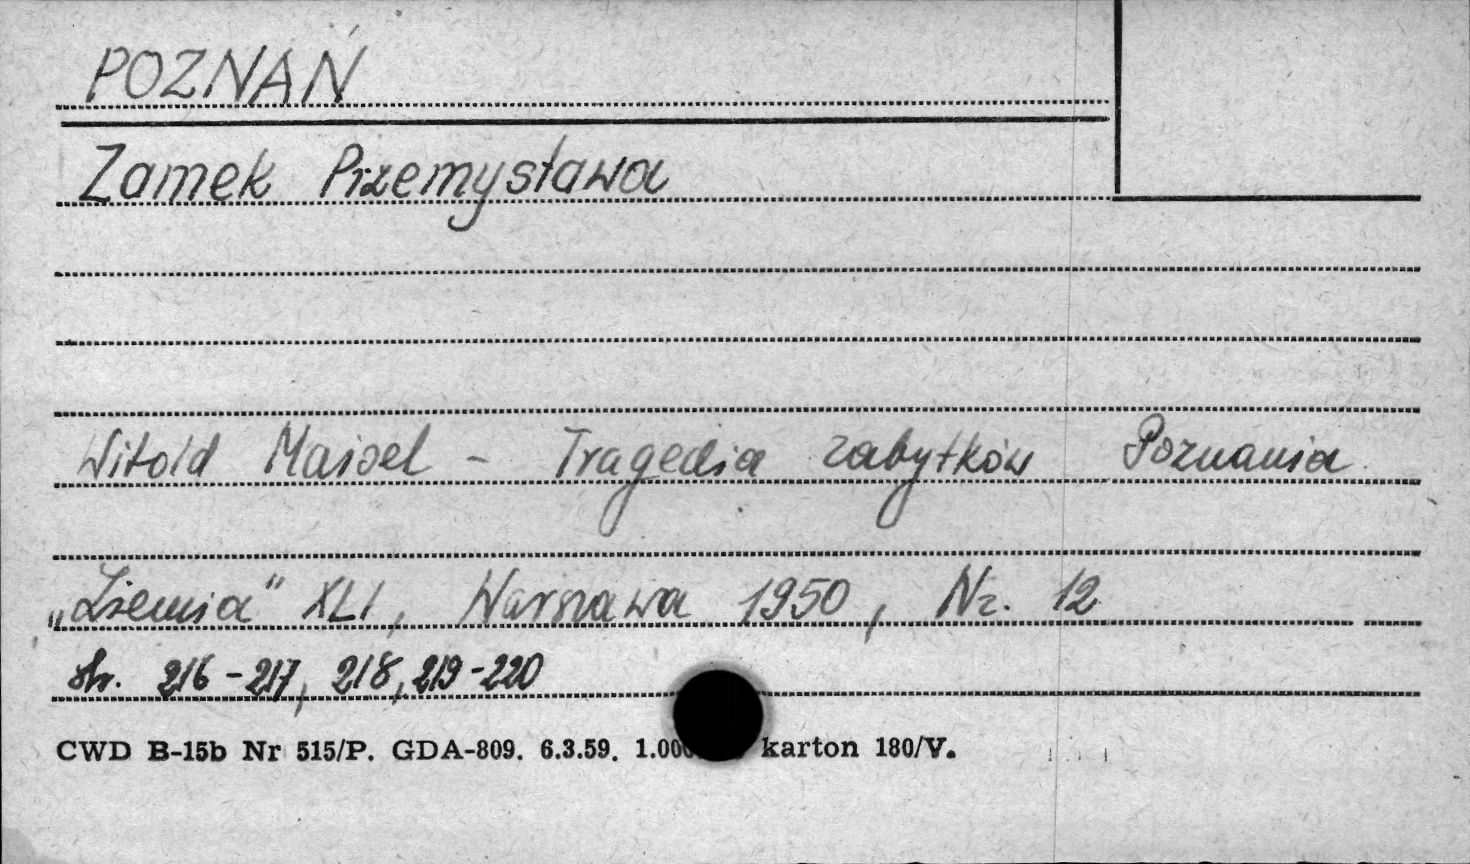 POZNAŃ
Zamek Przemysława
Witold Maisel - Tragedia zabytków Poznania
„Ziemia" XLI, Warszawa 1950, Nr. 12
str. 216-217, 218, 219-220
CWD B-15b Nr 515/P. GDA-809. 6.3.59. karton 180/V.